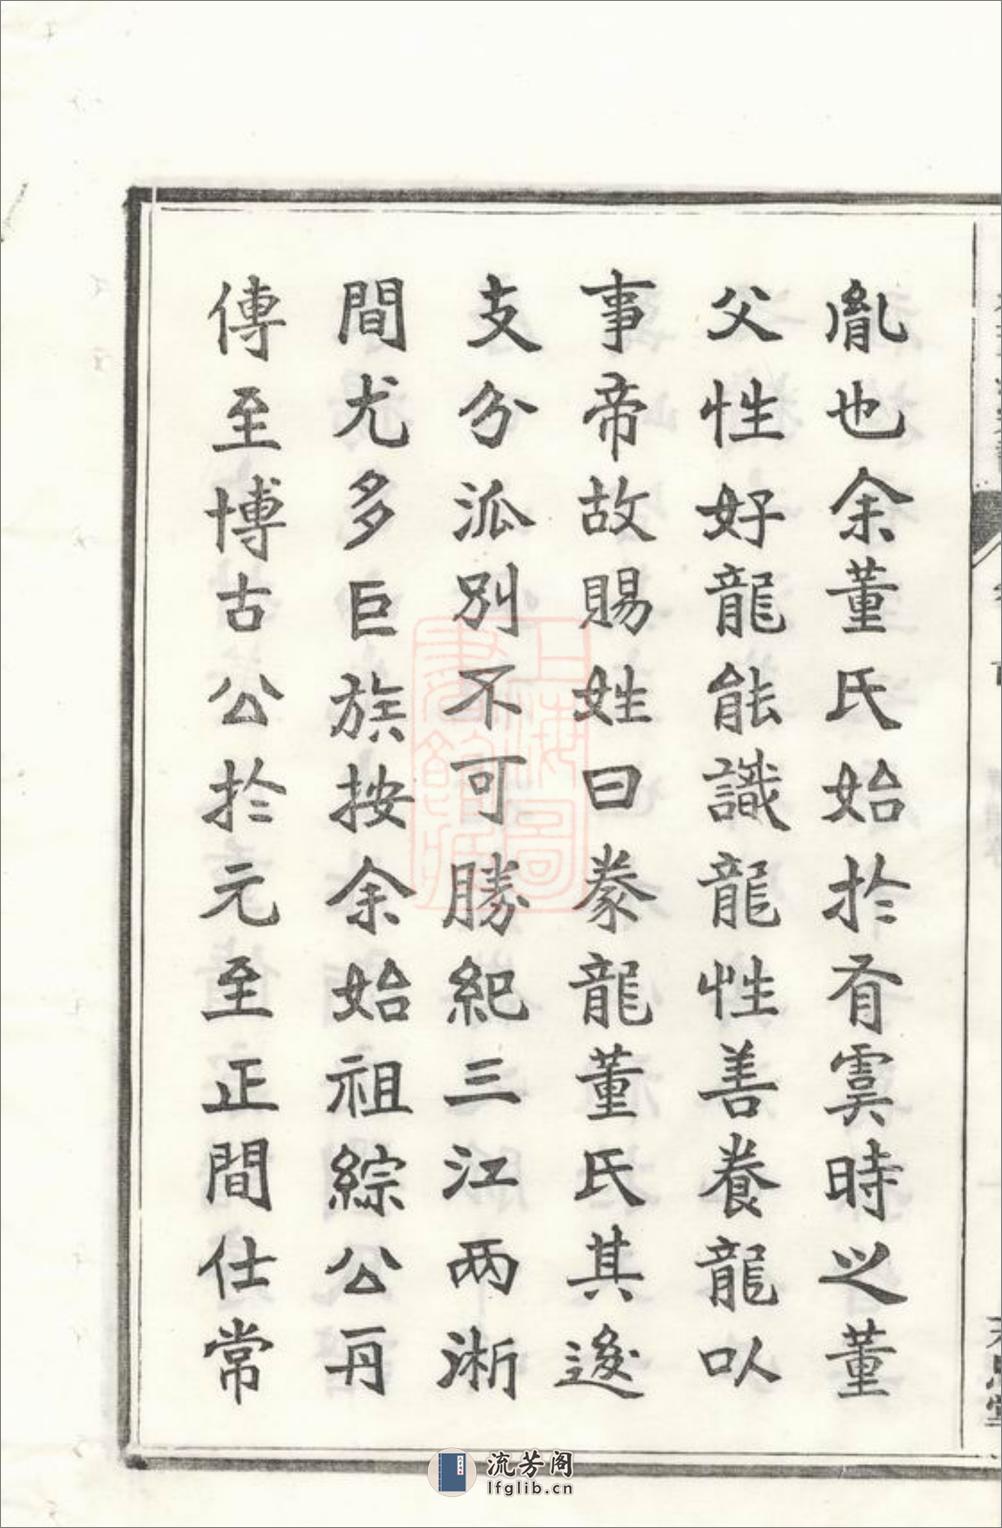 胤也余董氏始於有虞時之董
父性好龍能識龍性善養龍以
事帝故賜姓曰豢龍董氏其邃
支分派別不可勝紀三江兩淅
間尤多巨族按余始祖綜公再
傳至博古公於元至正間仕常
上海圖書館藏
流芳阁
lfglib.cn